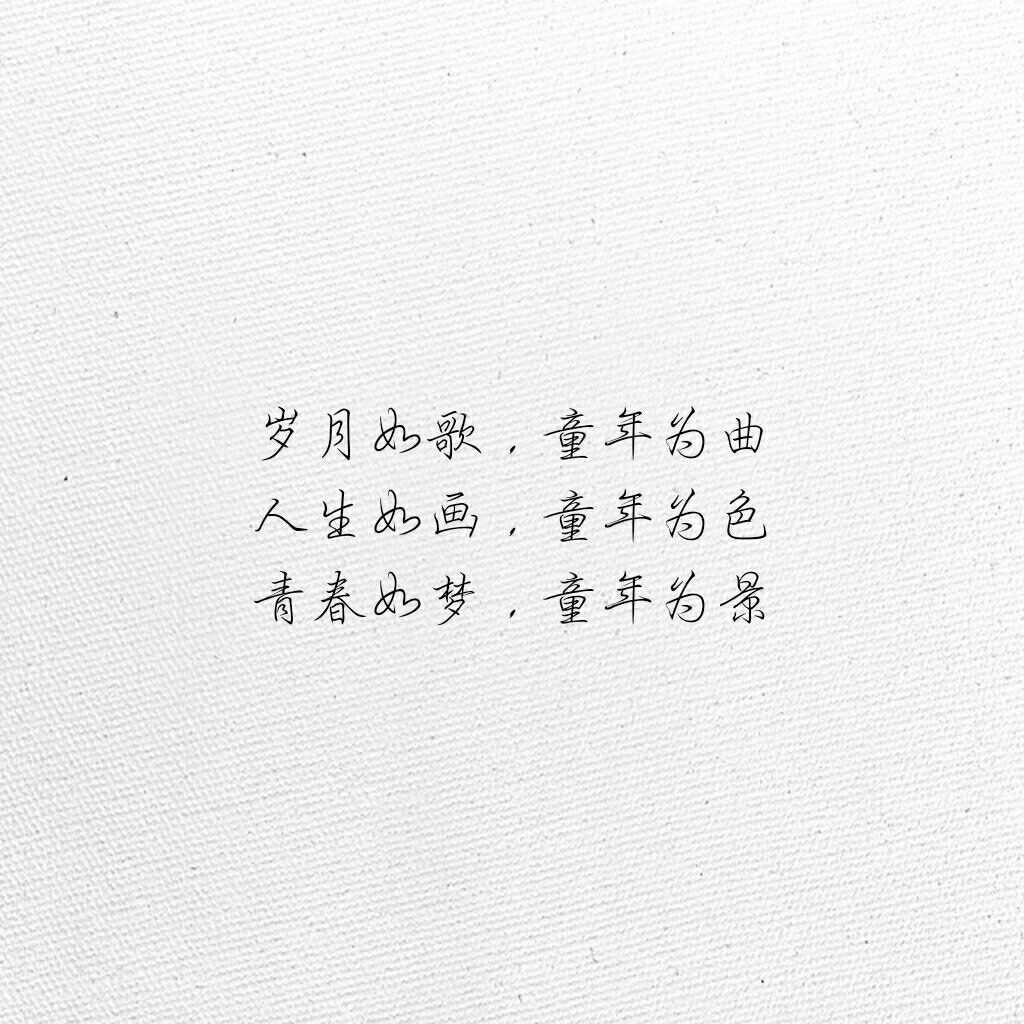 岁月如歌，童年为曲
人生如画，童年为色
青春如梦，童年为景